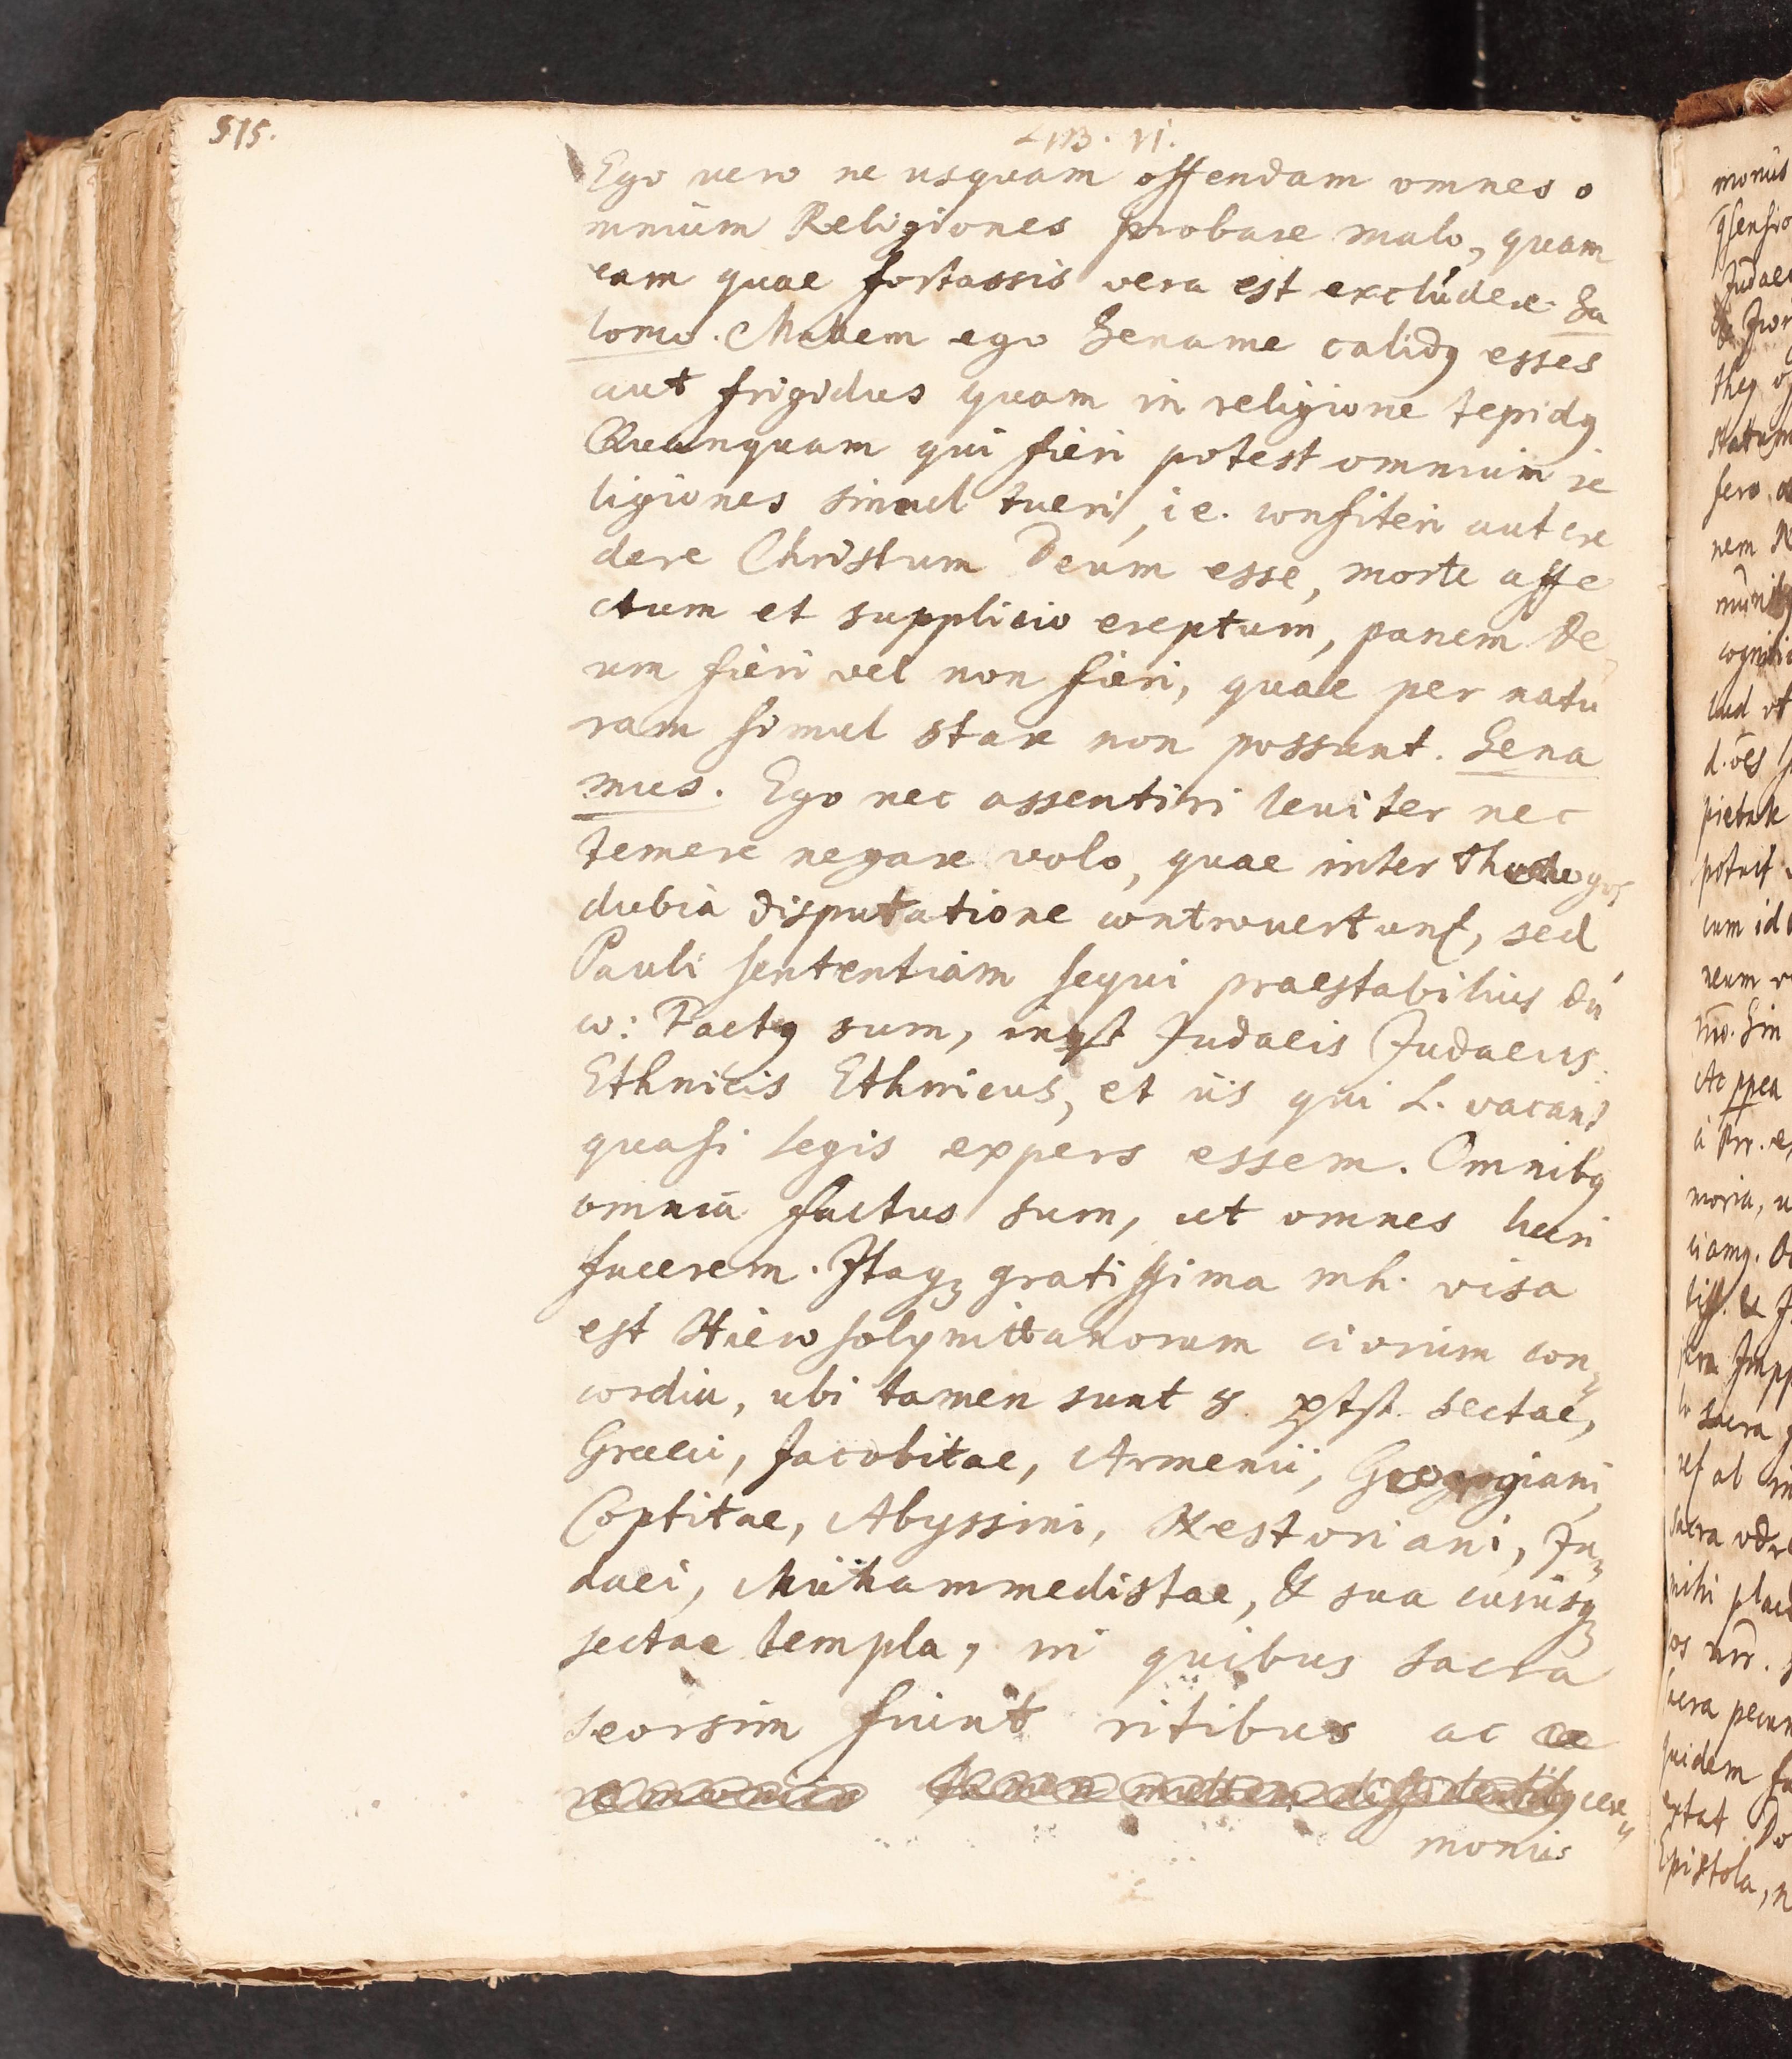 515.
LIB. VI.
Ego uero ne usquam offendam omnes o
mnium Religiones probare malo, quam
eam quae fortassis vera est excludere. Sa
lomo. Mallem ego Sename calidq esses
aut frigidus quam in religione tepidq
Quanquam qui fieri potest omnium re
ligiones simul tueri, i.e. confiteri aut cre
dere Christum Deum esse, morte affe
ctum et supplicio ereptum, panem De
um fieri vel non fieri, quae per natu
ram simul stare non possunt. Sena
mus. Ego nec assentiri leuiter nec
temere negare volo, quae inter theologos
dubia disputatione controuertunt, sed
Pauli sententiam sequi praestabilius du
co: Factq sum, inqt Judaeis Judaeus
Ethnicis Ethnicus, et iis qui L. vacant
quasi legis expers essem. Omnibq
omnia factus sum, ut omnes lucri
facerem. Itaqz gratissima mh. visa
est Hierosolymittanorum civium con
cordia, ubi tamen sunt 8 sectae,
Graeci, Jacobitae, Armenii, Georgiani,
Coptitae, Abyssini, Nestoriani, Ju
daei, Muhammedistae, & sua cuiusqz
sectae templa, in quibus sacra
seorsim fiunt ritibus ac ce
remoniis tamen multum dissidentibq cere
moniis